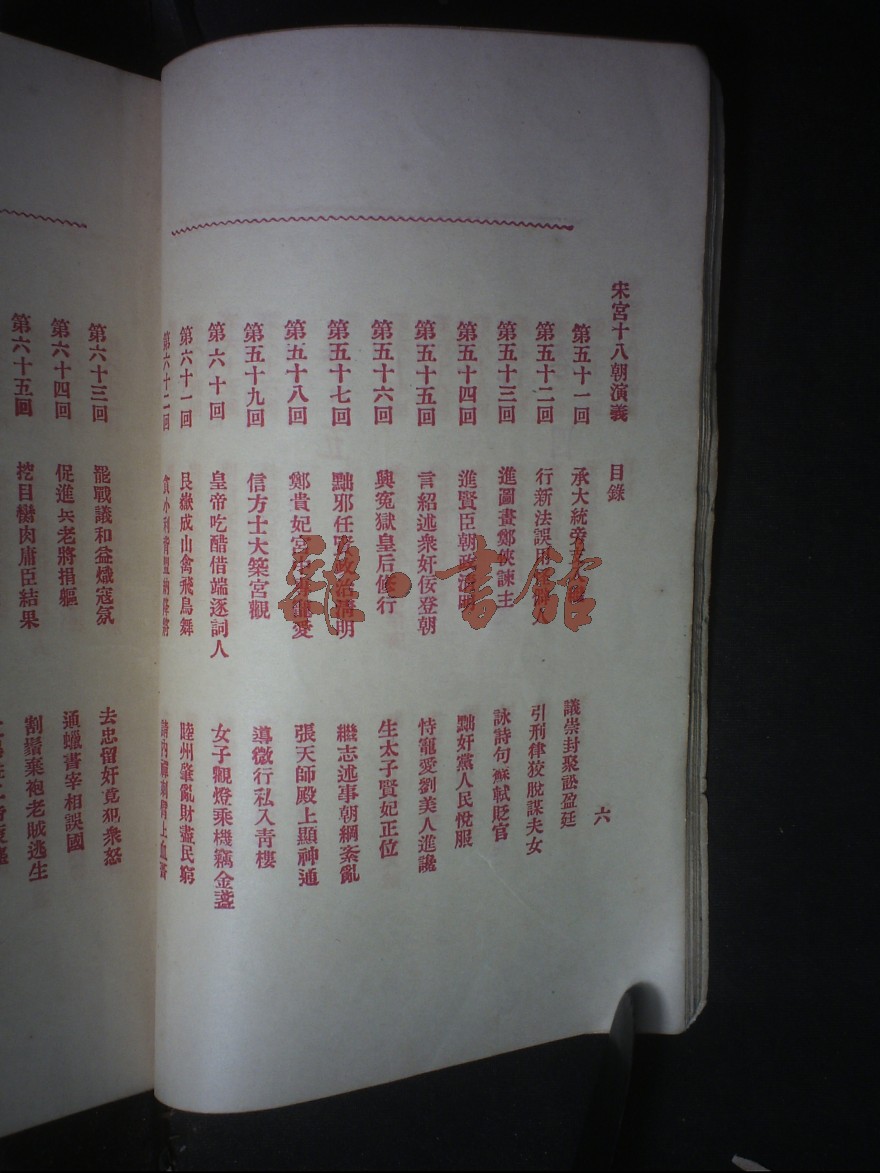 宋宮十八朝演義 目錄 六
第五十一回 承大統旁 議崇封聚訟盈廷
第五十二回 行新法誤用 人 引刑律狡脫謀夫女
第五十三回 進圖畫鄭俠諫主 詠詩句蘇軾貶官
第五十四回 進賢臣朝政清明 黜奸黨人民悅服
第五十五回 言紹述衆奸佞登朝 恃寵愛劉美人進讒
第五十六回 興冤獄皇后修行 生太子賢妃正位
第五十七回 黜邪任賢政治清明 繼志述事朝綱紊亂
第五十八回 鄭貴妃宮 愛 張天師殿上顯神通
第五十九回 信方士大築宮觀 導微行私入青樓
第六十回 皇帝吃醋借端逐詞人 女子觀燈乘機竊金盞
第六十一回 艮嶽成山禽飛鳥舞 睦州肇亂財盡民窮
第六十二回 貪小利背盟納降將
第六十三回 罷戰議和益熾寇氛 去忠留奸竟犯衆怒
第六十四回 促進兵老將捐軀 通蠟書宰相誤國
第六十五回 挖目臠肉庸臣結果 割鬚棄袍老賊逃生
雜·書館